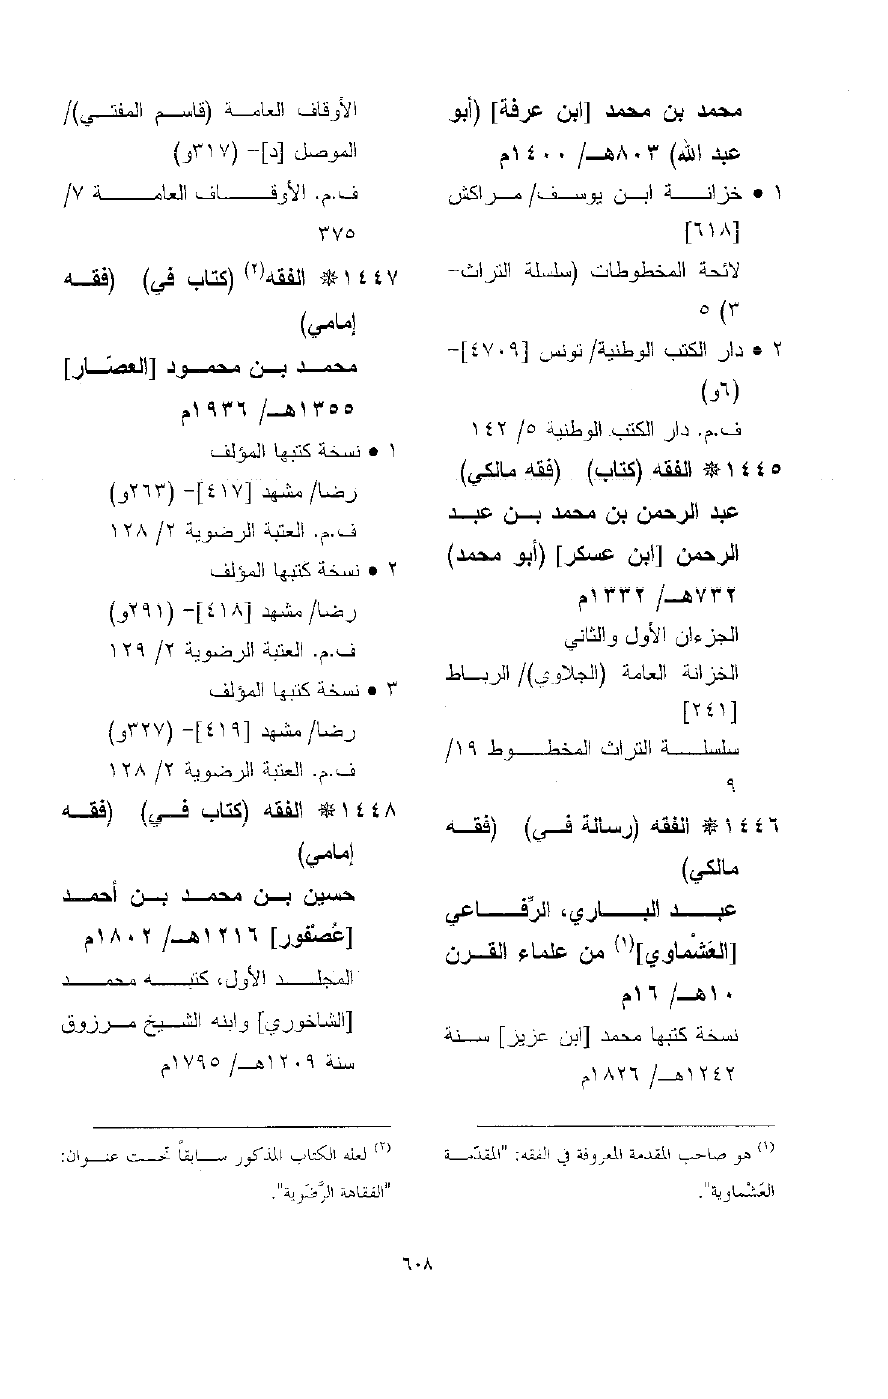 محمد بن محمد [ابن عرفة] (أبو
عبد الله) ٨٠٣هـ/ ١٤٠٠م
١ • خزانة ابن يوسف/ مراكش
[٦١٨]
لائحة المخطوطات (سلسلة التراث-
٣) ٥
٢ • دار الكتب الوطنية/ تونس [٤٧٠٩]-
(٦و)
ف.م. دار الكتب الوطنية ٥/ ١٤٢
١٤٤٥* الفقه (كتاب) (فقه مالكي)
عبد الرحمن بن محمد بن عبد
الرحمن [ابن عسكر] (أبو محمد)
٧٣٢هـ/ ١٣٣٢م
الجزءان الأول والثاني
الخزانة العامة (الجلاوي)/ الرباط
[٢٤١]
سلسلة التراث المخطوط ١٩/
٩
١٤٤٦* الفقه (رسالة في) (فقه
مالكي)
عبد الباري، الرِّفاعي
[العَشْماوي](١) من علماء القرن
١٠هـ/ ١٦م
نسخة كتبها محمد [ابن عزيز] سنة
١٢٤٢هـ/ ١٨٢٦م
(١) هو صاحب المقدمة المعروفة في الفقه: "المقدّمة
العَشْماوية".
الأوقاف العامة (قاسم المفتي)/
الموصل [د]- (٣١٧و)
ف.م. الأوقاف العامة ٧/
٣٧٥
١٤٤٧* الفقه(٢) (كتاب في) (فقه
إمامي)
محمد بن محمود [العصّار]
١٣٥٥هـ/ ١٩٣٦م
١ • نسخة كتبها المؤلف
رضا/ مشهد [٤١٧]- (٢٦٣و)
ف.م. العتبة الرضوية ٢/ ١٢٨
٢ • نسخة كتبها المؤلف
رضا/ مشهد [٤١٨]- (٢٩١و)
ف.م. العتبة الرضوية ٢/ ١٢٩
٣ • نسخة كتبها المؤلف
رضا/ مشهد [٤١٩]- (٣٢٧و)
ف.م. العتبة الرضوية ٢/ ١٢٨
١٤٤٨* الفقه (كتاب في) (فقه
إمامي)
حسين بن محمد بن أحمد
[عُصفور] ١٢١٦هـ/ ١٨٠٢م
المجلد الأول، كتبه محمد
[الشاخوري] وابنه الشيخ مرزوق
سنة ١٢٠٩هـ/ ١٧٩٥م
(٢) لعله الكتاب المذكور سابقاً تحت عنوان:
"الفقاهة الرَّضَوية".
٦٠٨